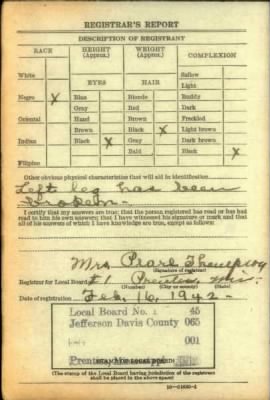 REGISTRAR'S REPORT
DESCRIPTION OF REGISTRANT
RACE HEIGHT (Approx.) WEIGHT (Approx.) COMPLEXION
White Sallow
EYES HAIR Light
Negro X Blue Blonde Ruddy
Gray Red Dark
Oriental Hazel Brown Freckled
Brown Black X Light brown
Indian Black X Gray Dark brown
Bald Black X
Filipino
Other obvious physical characteristics that will aid in identification
Left leg has been
broken
I certify that my answers are true; that the person registered has read or has had read to him his own answers; that I have witnessed his signature or mark and that all of his answers of which I have knowledge are true, except as follows:
Mrs. Pearl Thompson
(Signature of registrar)
Registrar for Local Board #1 Prentiss, Miss.
(Number) (City or county) (State)
Date of registration Feb. 16, 1942
Local Board No. 1 45
Jefferson Davis County 065
001
(STAMP OF LOCAL BOARD)
(The stamp of the Local Board having jurisdiction of the registrant shall be placed in the above space)